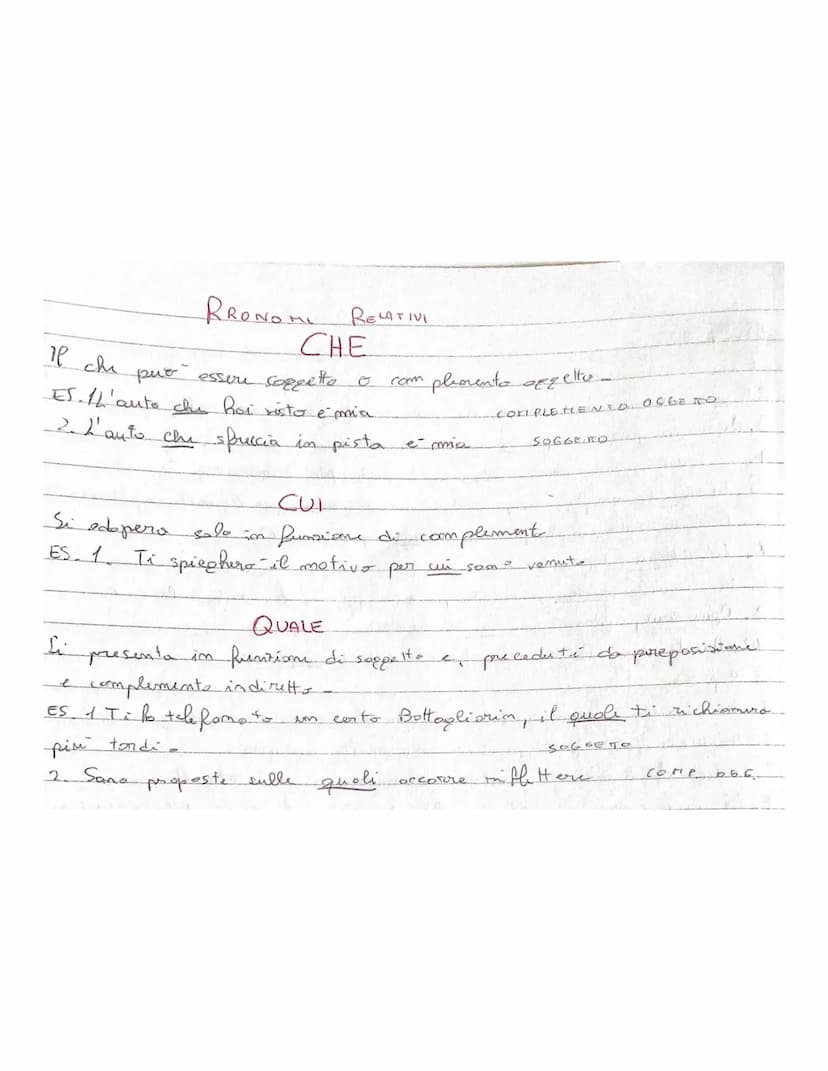 PRONOMI RELATIVI
CHE
Il che può essere soggetto o complemento oggetto.
ES. 1 L'auto che hai visto è mia COMPLEMENTO OGGETTO
2. L'auto che sfreccia in pista è mia SOGGETTO
CUI
Si adopera solo in funzione di complement
ES. 1. Ti spiegherò il motivo per cui sono venuto
QUALE
Si presenta in funzione di soggetto e, preceduti da preposizione
e complemento indiretto.
ES. 1 Ti ha telefonato un certo Bottagliorin, il quale ti richiamerà
più tardi. SOGGETTO
2. Sono proposte sulle quali occorre riflettere COMP. OGG.